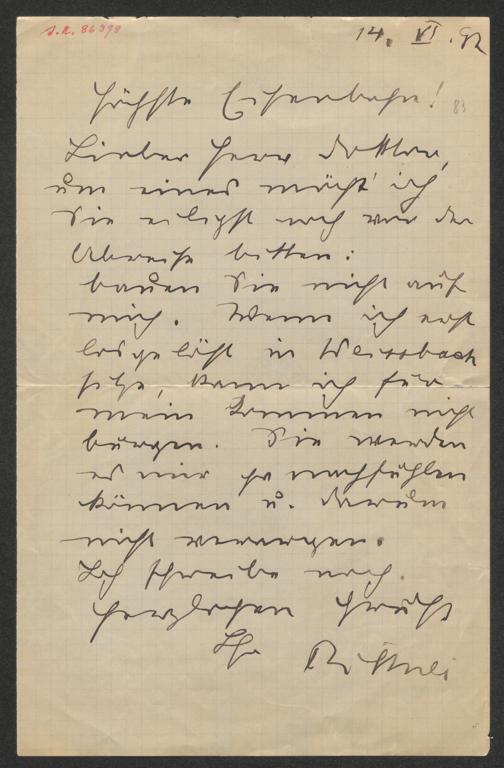 J.N. 86398
14. VI. 92
83
Höchste Eisenbahn!
Lieber Herr Doktor,
um eines möcht' ich
Sie eiligst noch vor der
Abreise bitten:
bauen Sie nicht auf
mich. Wenn ich erst
losgelöst in Weissbach
sitze, kann ich für
mein Kommen nicht
bürgen. Sie werden
es mir ja nachfühlen
können u. darum
nicht verargen.
Ich schreibe noch.
Herzlichen Gruß
Ihr